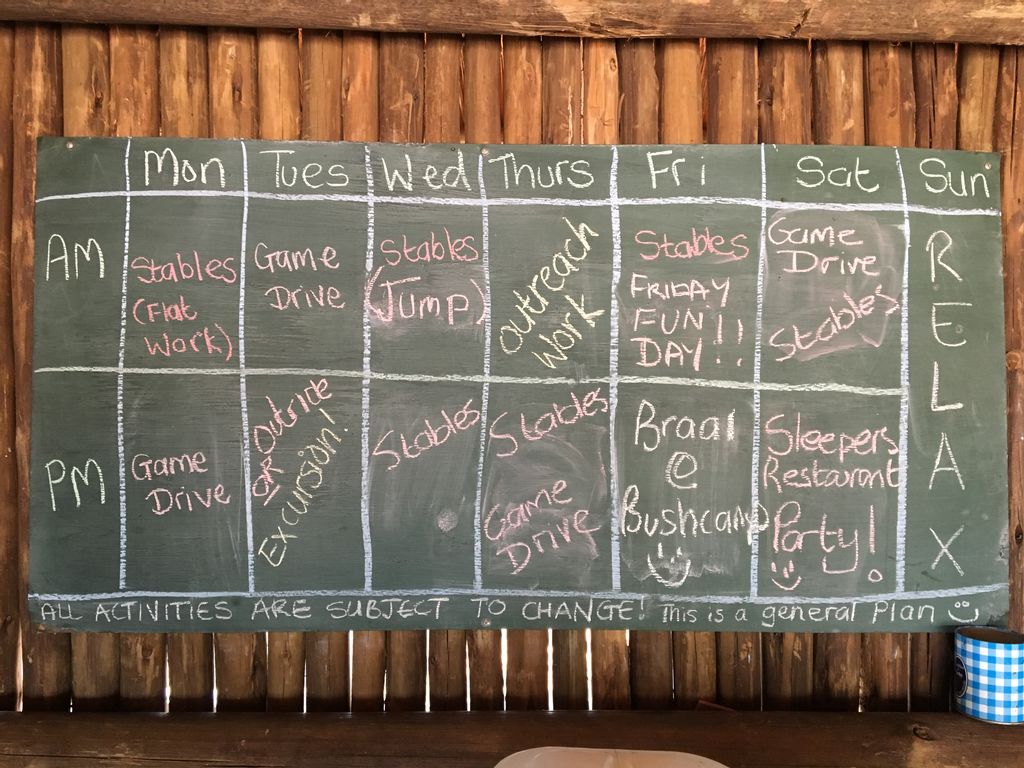 Mon Tues Wed Thurs Fri Sat Sun
AM
Stables
(Flat
Work)
Game
Drive
Stables
(Jump)
Outreach
Work
Stables
FRIDAY
FUN
DAY!!
Game
Drive
Stables
PM
Game
Drive
OR Outride
Excursion!
Stables
Stables
Game
Drive
Braai
@
Bushcamp
Sleepers
Restaurant
Party!
R
E
L
A
X
ALL ACTIVITIES ARE SUBJECT TO CHANGE! This is a general Plan